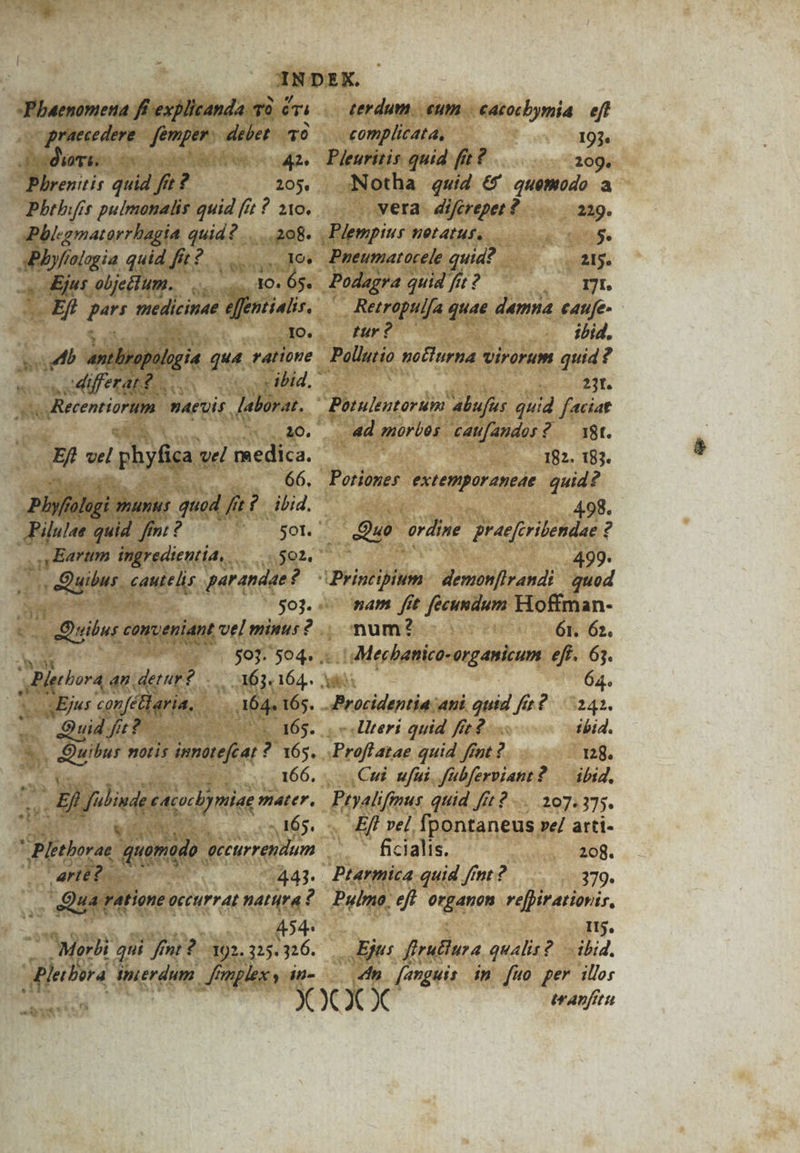 INDEX.
Phaenomena ſi explicanda τὸ ὅτι
praecedere ſemper debet τὸ
διοτι. 42.
Phrenitis quid ſit? 205.
Phthiſis pulmonalis quid ſit? 210.
Phlegmatorrhagia quid? 208.
Phyſiologia quid ſit? 10.
Ejus objectum. 10. 65.
Eſt pars medicinae eſſentialis.
10.
Ab anthropologia qua ratione
differat? ibid.
Recentiorum naevis laborat.
20.
Eſt vel phyſica vel medica.
66.
Phyſiologi munus quod ſit? ibid.
Pilulae quid ſint? 501.
Earum ingredientia. 502.
Quibus cautelis parandae?
503.
Quibus conveniant vel minus?
503. 504.
Plethora an detur? 163. 164.
Ejus conſectaria. 164. 165.
Quid ſit? 165.
Quibus notis innoteſcat? 165.
166.
Eſt ſubinde cacochymiae mater.
165.
Plethorae quomodo occurrendum
arte? 443.
Qua ratione occurrat natura?
454.
Morbi qui ſint? 192. 325. 326.
Plethora interdum ſimplex, in-
terdum cum cacochymia eſt
complicata. 193.
Pleuritis quid ſit? 209.
Notha quid & quomodo a
vera diſcrepet? 229.
Plempius notatus. 5.
Pneumatocele quid? 215.
Podagra quid ſit? 171.
Retropulſa quae damna cauſe-
tur? ibid.
Pollutio nocturna virorum quid?
231.
Potulentorum abuſus quid faciat
ad morbos cauſandos? 181.
182. 183.
Potiones extemporaneae quid?
498.
Quo ordine praeſcribendae?
499.
Principium demonſtrandi quod
nam ſit ſecundum Hoffman-
num? 61. 62.
Mechanico-organicum eſt. 63.
64.
Procidentia ani quid ſit? 242.
Uteri quid ſit? ibid.
Proſtatae quid ſint? 128.
Cui uſui ſubſerviant? ibid.
Ptyaliſmus quid ſit? 207. 375.
Eſt vel ſpontaneus vel arti-
ficialis. 208.
Ptarmica quid ſint? 379.
Pulmo eſt organon reſpirationis.
115.
Ejus ſtructura qualis? ibid.
An ſanguis in ſuo per illos
)( )( )( )( tranſitu